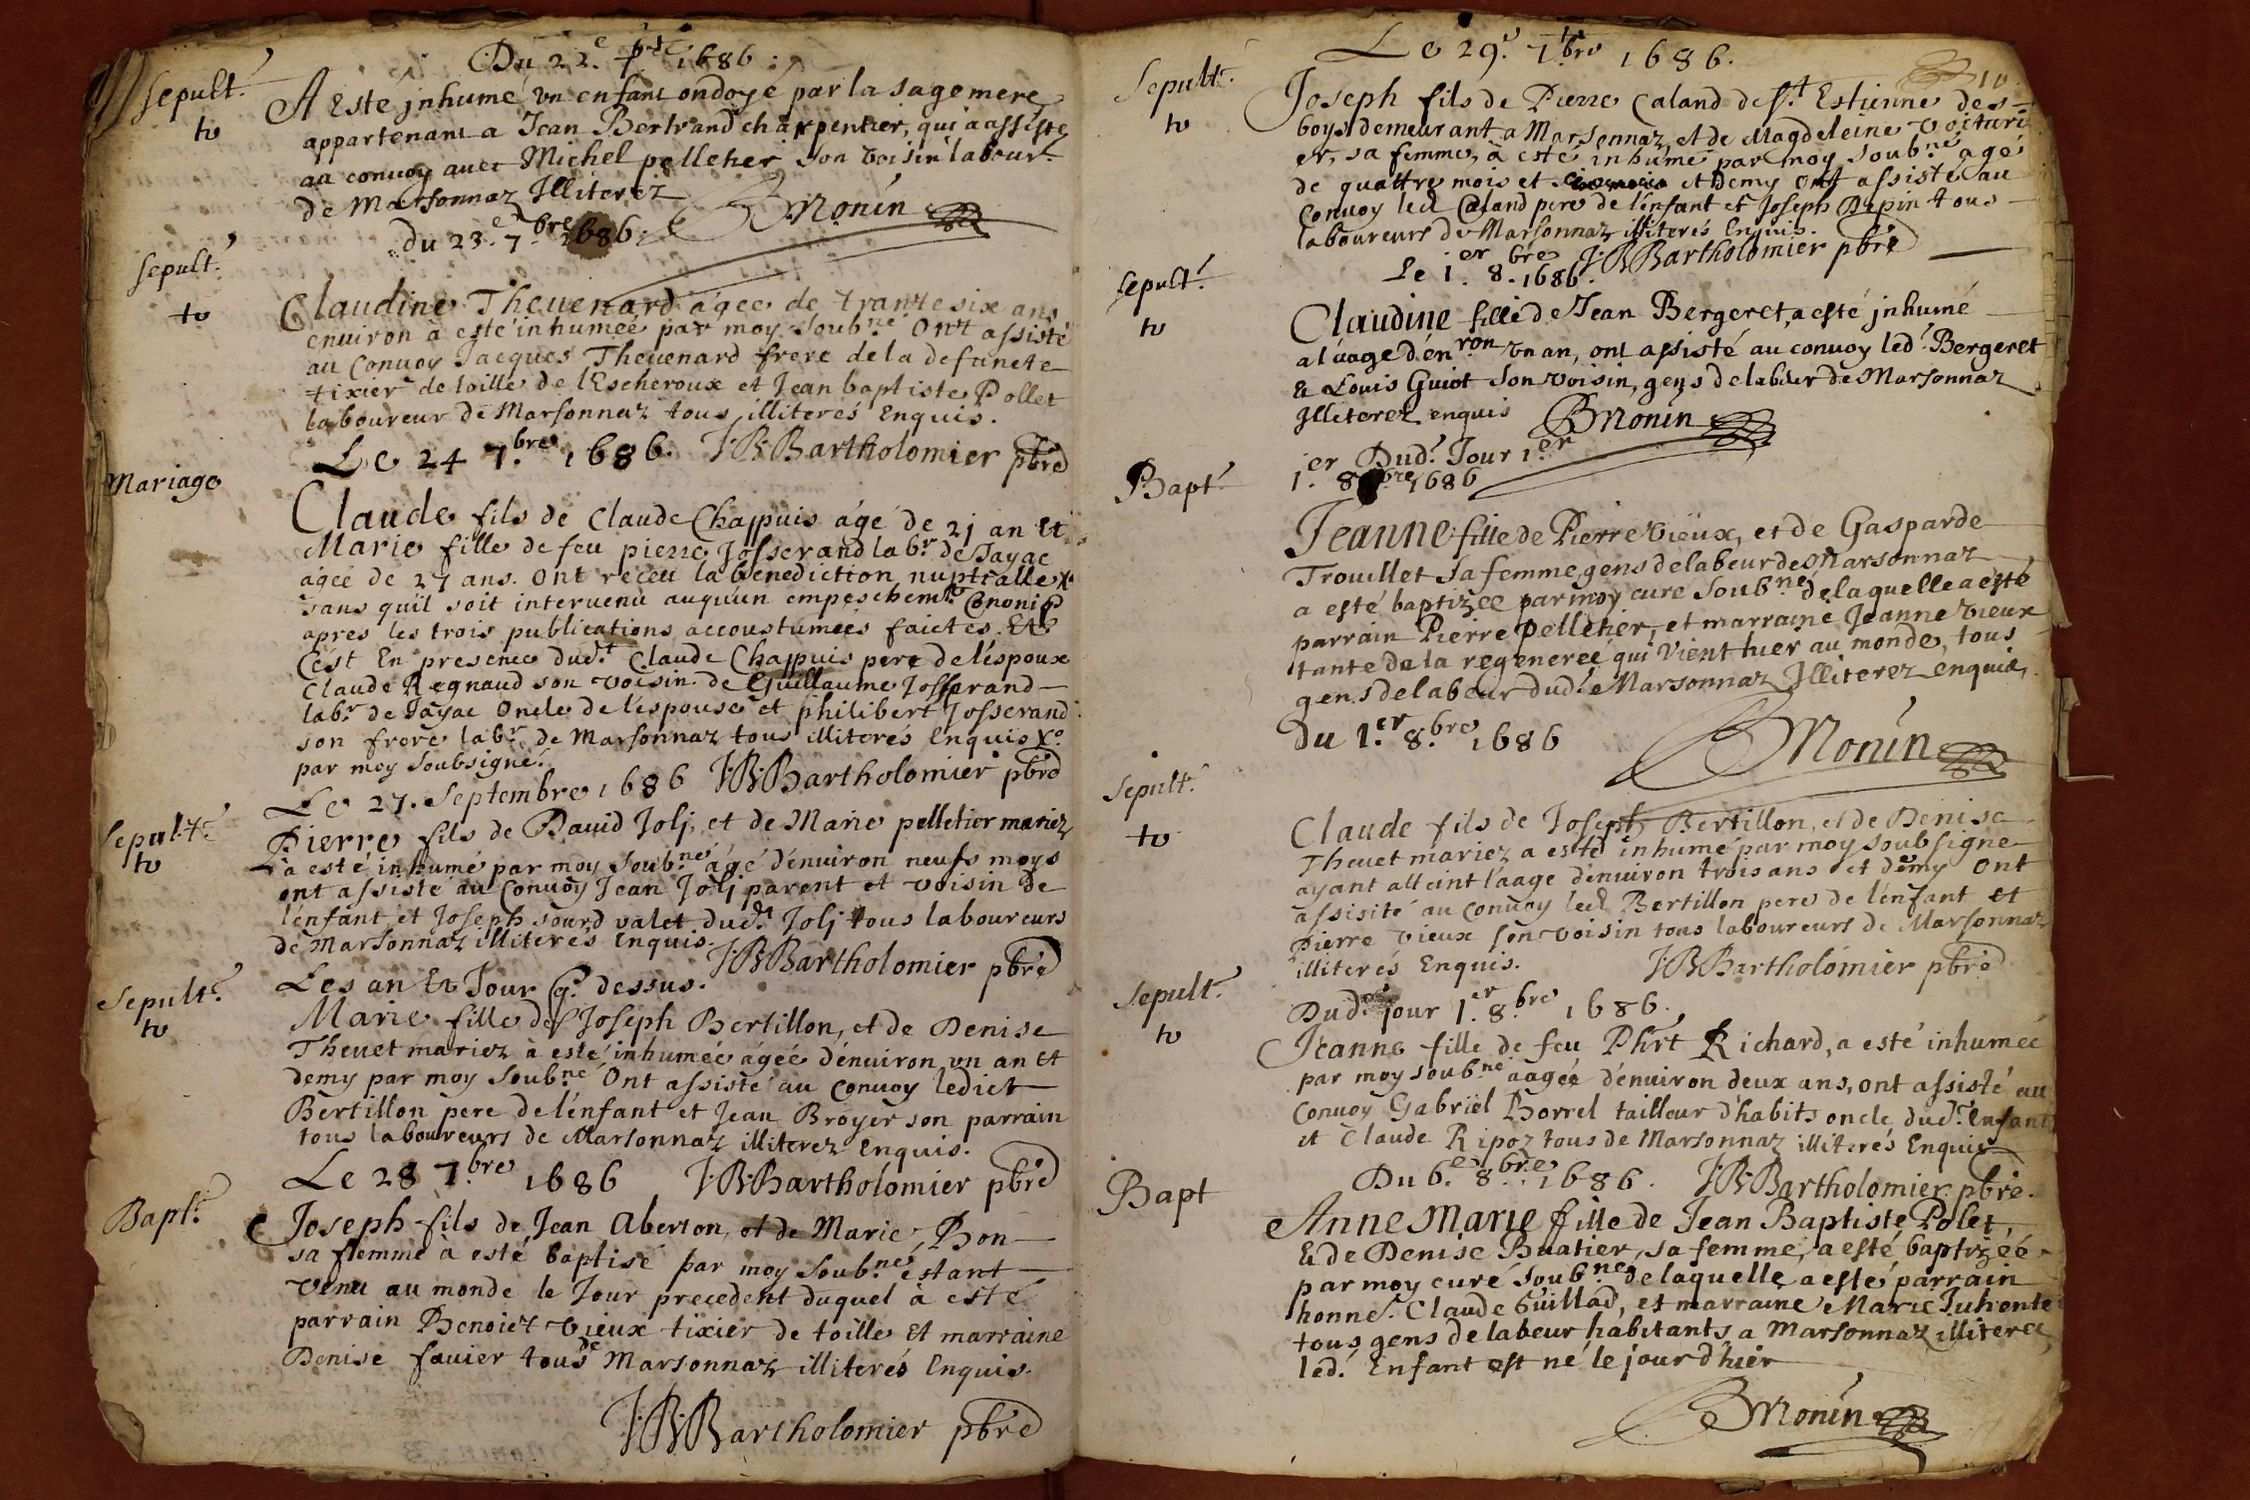 Du 22.e 7bre 1686.
Sepult.
to
A Esté jnhumé vn enfant ondoyé par la sagemere
appartenant a Jean Bertrand charpentier, qui a assisté
au convoy auec Michel pelletier son voisin labour.
de Marsonnaz Illiterez
BMonin
du 23.e 7.bre 1686.
Sepult.
to
Claudine Theuenard ágee de trante six ans
enuiron à esté inhumeé par moy soub.né Ont assisté
au Conuoy Jacques Theuenard frere de la defuncte
tixier de toille de l'Escheroux et Jean baptiste Pollet
laboureur de Marsonnaz tous illiterés Enquis.
J.B.Bartholomier pbre
Le 24 7.bre 1686.
Mariage
Claude fils de Claude Chappuis ágé de 21 an Et
Marie fille de feu pierre Josserand lab.r de Jayac
ágeé de 27 ans. Ont receu la benediction nuptialle
sans qu'il soit interuenu auqu'un empeschem.t Cononiq
apres les trois publications accoustumées faictes. Et
C'est En presence dud.t Claude Chappuis pere de l'espoux
Claude Regnaud son voisin. de Guillaume Josserand
lab.r de Jayac Oncle de l'espouse et philibert Josserand
son frere lab.r de Marsonnaz tous illiterés Enquis
par moy Soubsigné.
J.B.Bartholomier pbre
Le 27. Septembre 1686
Sepult.
to
Pierre fils de Dauid Jolj, et de Marie pelletier mariez
à esté inhumé par moy soub.né ágé d'enuiron neufs moys
ont assisté au Conuoy Jean Jolj parent et voisin de
l'enfant et Joseph sourd valet dud.t Jolj tous laboureurs
de Marsonnaz illiterés Enquis.
J.B.Bartholomier pbre
Les an Et Jour q. dessus.
Sepult.
to
Marie fille de Joseph Bertillon, et de Denise
Theuet mariez à esté inhumeé ágeé d'enuiron vn an et
demy par moy Soub.né Ont assisté au Conuoy ledict
Bertillon pere de l'enfant et Jean Broyer son parrain
tous laboureurs de Marsonnaz illiterez Enquis.
J.B.Bartholomier pbre
Le 28 7.bre 1686
Bapt.
Joseph fils de Jean Aberton, et de Marie Bon
sa femme à esté baptisé par moy Soub.né estant
venu au monde le Jour precedent duquel à esté
parrain Benoiet vieux tixier de toille et marraine
Denise fauier tous de Marsonnaz illiterés Enquis.
J.B.Bartholomier pbre
10
Le 29.e 7bre 1686.
Sepult.
to
Joseph fils de Pierre Caland de S.t Estienne des
boys demeurant a Marsonnaz, et de Magdeleine voituri
er, sa femme, à esté inhumé par moy soub.né age
de quattre mois et et demy Ont assisté au
Conuoy led. Caland pere de l'enfant et Joseph Depin tous
laboureurs de Marsonnaz illiterés Enquis.
J.B.Bartholomier pbre
Le 1.er 8.bre 1686.
Sepult.
to
Claudine fille de Jean Bergeret, a esté jnhumé
a l'aage d'en.ron vn an, ont assisté au conuoy led. Bergeret
& Louis Guiot son voisin, gens de labeur de Marsonnaz
Illiterez enquis
BMonin
Dud. Jour 1.er
1.er 8.bre 1686
Bapt.
Jeanne fille de Pierre vieux, et de Gasparde
Trouillet sa femme, gens de labeur de Marsonnaz
a esté baptizee par moy curé Soub.né de laquelle a esté
parrain Pierre pelletier, et marraine Jeanne vieux
tante de la regeneree qui vient hier au monde, tous
gens de labeur dud. Marsonnaz Illiterez enquis
BMonin
Du 1.er 8.bre 1686
Sepult.
to
Claude fils de Joseph Bertillon, et de Denise
Theuet mariez a esté inhumé par moy soubsigné
ayant atteint l'aage d'enuiron trois ans et demy Ont
assisité au conuoy led. Bertillon pere de l'enfant et
pierre vieux son voisin tous laboureurs de Marsonnaz
illiterés Enquis.
J.B.Bartholomier pbre
Dud. jour 1.er 8.bre 1686.
Sepult.
to
Jeanne fille de feu Phrt Richard, a esté inhumeé
par moy soub.né aagée d'enuiron deux ans, ont assisté au
Conuoy Gabriel Borrel tailleur d'habits oncle dud. Enfant
et Claude Ripoz tous de Marsonnaz illiterés Enquis
J.B.Bartholomier pbre.
Du 6.e 8.bre 1686.
Bapt
Anne Marie fille de Jean Baptiste Polet,
& de Denise Buatier, sa femme, a esté baptizéé
par moy curé soub.né de laquelle a esté parrain
honne. Claude Guillad, et marraine Marie Tuhente
tous gens de labeur habitants a Marsonnaz illiterez
led. Enfant est né le jour d'hier
BMonin